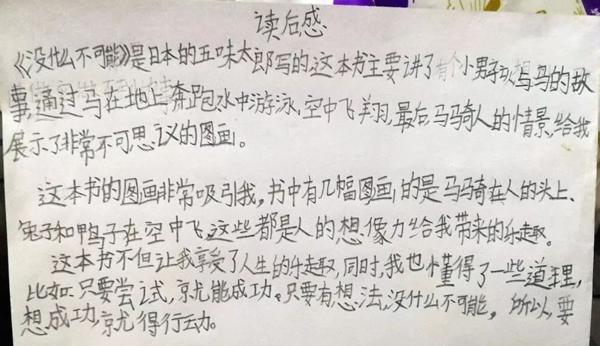 读后感
《没什么不可能》是日本的五味太郎写的,这本书主要讲了有个小男子汉想骂马的故
事,通过马在地上奔跑,水中游泳,空中飞翔,最后,马骑人的情景,给我
展示了非常不可思议的图画。
这本书的图画非常吸引我,书中有几幅图画,的是马马骑在人的头上、
兔子和鸭子在空中飞,这些都是人的想像力给我带来的乐趣。
这本书不但让我享受了人生的乐趣,同时,我也懂得了一些道理,
比如:只要尝试,就能成功。只要有想法,没什么不可能。所以,要
想成功,就得行动。